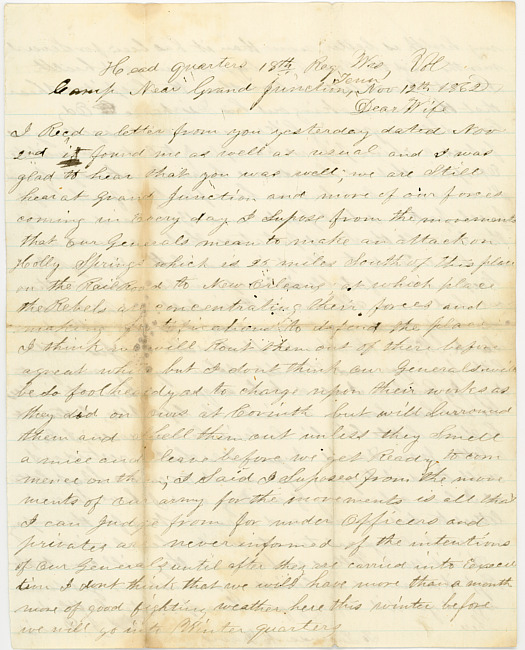 Head quarters 18th Reg Wis Vol
Camp Near Grand Junction, Tenn, Nov 12th 1862
Dear Wife
I Recd a letter from you yesterday dated Nov
2nd it found me as well as usual and I was
glad to hear that you was well; we are Still
hear at Grand Junction and more of our forces
coming in Every day I Supose from the movements
that our Generals mean to make an attack on
Holly Springs which is 25 miles South of this place
on the Rail Road to New Orleans at which place
the Rebels are concentrating their forces and
making to defend the place
I think we will Rout them out of there before
a great while but I dont think our Generals will
be so foolheardy as to charge upon their works as
they did on ours at Corinth but will Surround
them and shell them out unless they Smell
a mice and leave before we get Ready to com
mence on them; I Said I Suposed from the move
ments of our army for the movements is all that
I can Judge from for under Officers and
privates are never informed of the intentions
of Our Generals until after they are carried into Execu
tion I dont think that we will have more than a month
more of good fighting weather here this winter before
we will go into Winter quarters